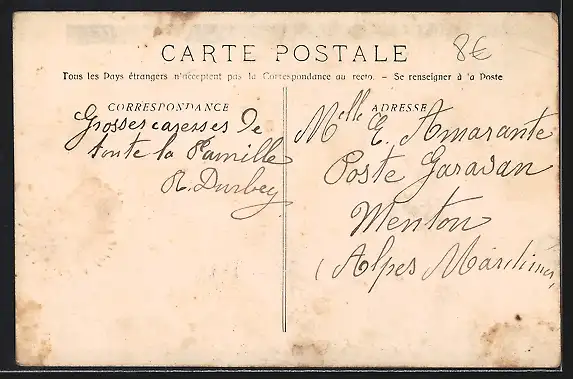 CARTE POSTALE
8€
Tous les Pays étrangers n'acceptent pas la Correspondance au recto. - Se renseigner à la Poste
CORRESPONDANCE
Grosses caresses de
toute la Famille
R. Durbey
ADRESSE
Melle E. Amarante
Poste Garavan
Menton
(Alpes Maritimes)